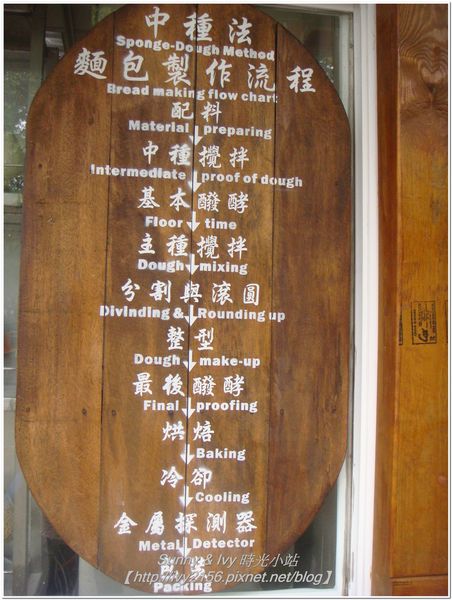 中種法
Sponge-Dough Method
麵包製作流程
Bread making flow chart
配料
Material preparing
中種攪拌
Intermediate proof of dough
基本醱酵
Floor time
主種攪拌
Dough mixing
分割與滾圓
Divinding & Rounding up
整型
Dough make-up
最後醱酵
Final proofing
烘焙
Baking
冷卻
Cooling
金屬探測器
Metal Detector
Sunny & Ivy 時光小站
包裝
【http://ivy2156.pixnet.net/blog】
Packing